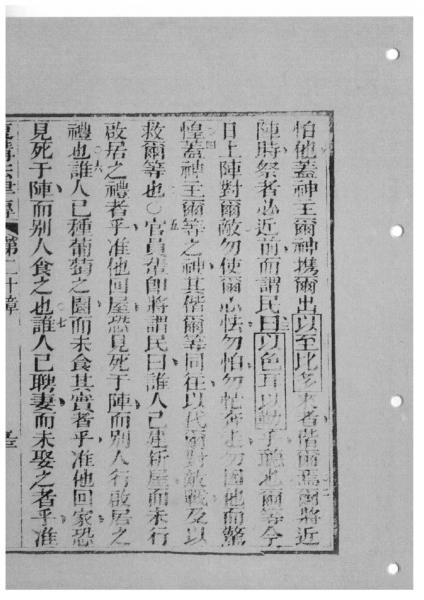 怕他蓋神主爾神攜爾出以至此
者偕爾焉爾將近
陣時祭者必近前而謂民曰以色耳以勒乎聽也爾等今
日上陣對爾敵勿使爾心怯勿怕勿忙
勿因他而驚
惶蓋神主爾等之神其偕爾等同往以代爾對敵戰及以
救爾等也○官員輩即將謂民曰誰人已建新屋而未行
啟居之禮者乎准他回屋恐見死于陣而別人行啟居之
禮也誰人已種葡萄之園而未食其實者乎准他回家恐
見死于陣而別人食之也誰人已聘妻而未娶之者乎准
第二十章